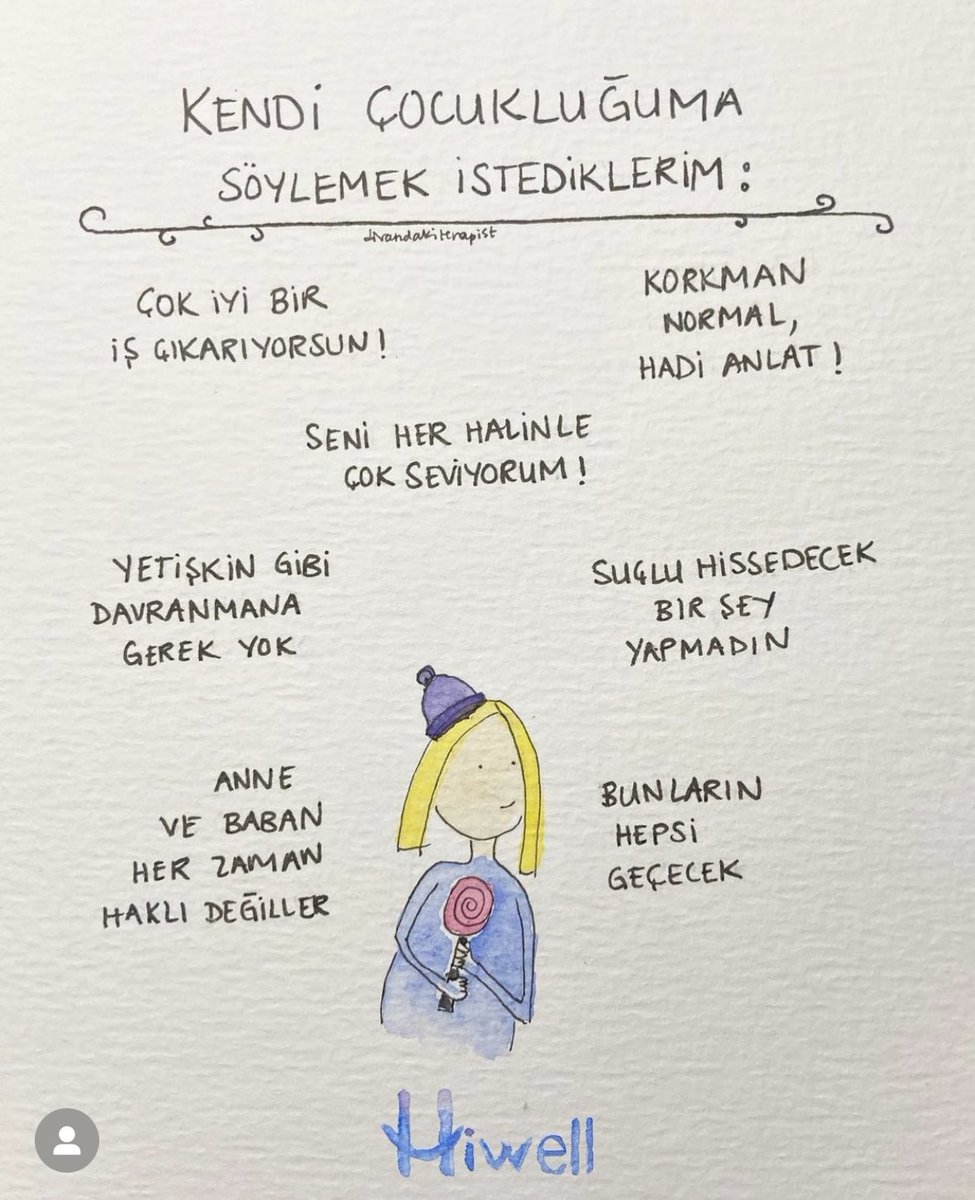 KENDİ ÇOCUKLUĞUMA
SÖYLEMEK İSTEDİKLERİM:
divandakiterapist
ÇOK İYİ BİR
İŞ ÇIKARIYORSUN!
KORKMAN
NORMAL,
HADİ ANLAT!
SENİ HER HALİNLE
ÇOK SEVİYORUM!
YETİŞKİN GİBİ
DAVRANMANA
GEREK YOK
SUÇLU HİSSEDECEK
BIR ŞEY
YAPMADIN
ANNE
VE BABAN
HER ZAMAN
HAKLI DEĞİLLER
BUNLARIN
HEPSİ
GEÇECEK
Hiwell